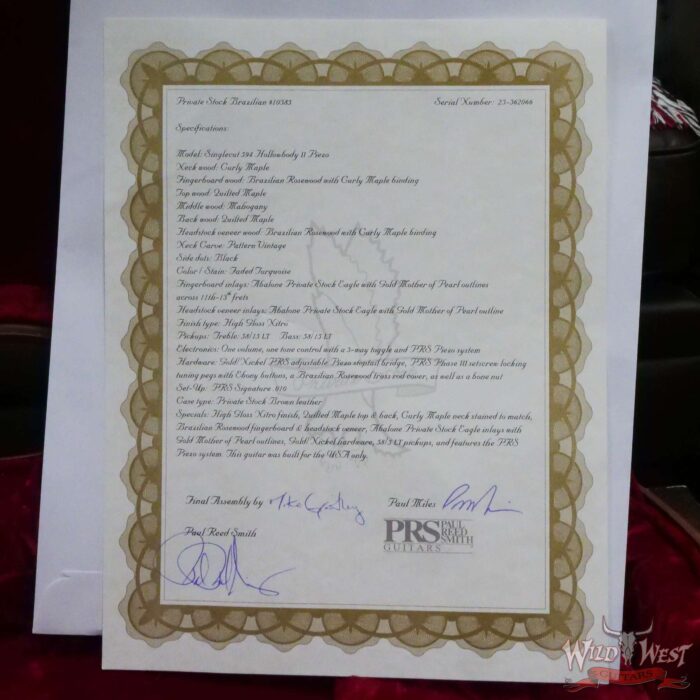 Private Stock Brazilian #10383 Serial Number: 23-362066
Specifications:
Model: Singlecut 594 Hollowbody II Piezo
Neck wood: Curly Maple
Fingerboard wood: Brazilian Rosewood with Curly Maple binding
Top wood: Quilted Maple
Middle wood: Mahogany
Back wood: Quilted Maple
Headstock veneer wood: Brazilian Rosewood with Curly Maple binding
Neck Carve: Pattern Vintage
Side dots: Black
Color / Stain: Faded Turquoise
Fingerboard inlays: Abalone Private Stock Eagle with Gold Mother of Pearl outlines
across 11th-13th frets
Headstock veneer inlays: Abalone Private Stock Eagle with Gold Mother of Pearl outline
Finish type: High Gloss Nitro
Pickups: Treble: 58/15 LT Bass: 58/15 LT
Electronics: One volume, one tone control with a 3-way toggle and PRS Piezo system
Hardware: Gold/Nickel PRS adjustable Piezo stoptail bridge, PRS Phase III setscrew locking
tuning pegs with Ebony buttons, a Brazilian Rosewood truss rod cover, as well as a bone nut
Set-Up: PRS Signature .010
Case type: Private Stock Brown leather
Specials: High Gloss Nitro finish, Quilted Maple top & back, Curly Maple neck stained to match,
Brazilian Rosewood fingerboard & headstock veneer, Abalone Private Stock Eagle inlays with
Gold Mother of Pearl outlines, Gold/Nickel hardware, 58/15 LT pickups, and features the PRS
Piezo system. This guitar was built for the USA only.
Final Assembly by Paul Miles
Paul Reed Smith
PRS PAUL REED SMITH
GUITARS
WILD WEST
GUITARS